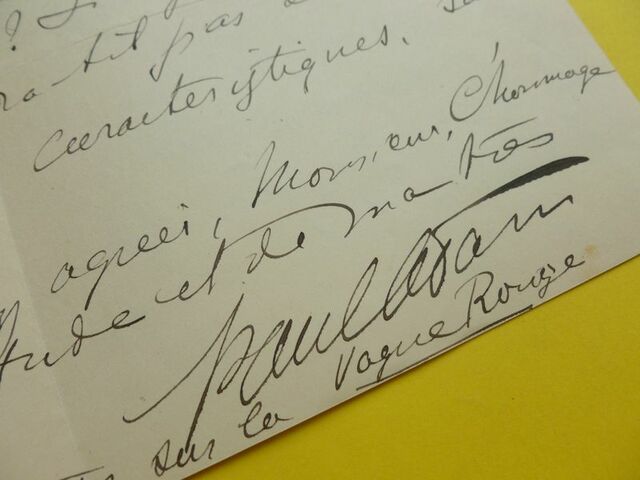 pas
caractéristiques.
agréer, Monsieur, l'hommage
et de ma très
Paul Adam
sur la Vague Rouge